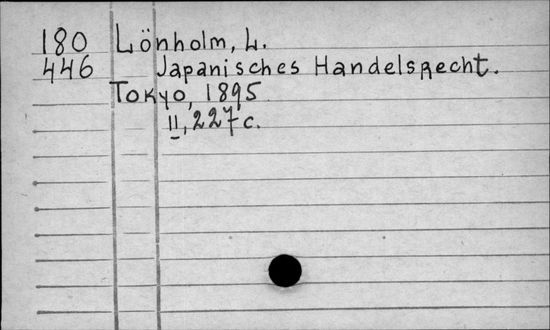 180 Lönholm, L.
446 Japanisches Handelsrecht.
Tokyo, 1895
II, 227 c.